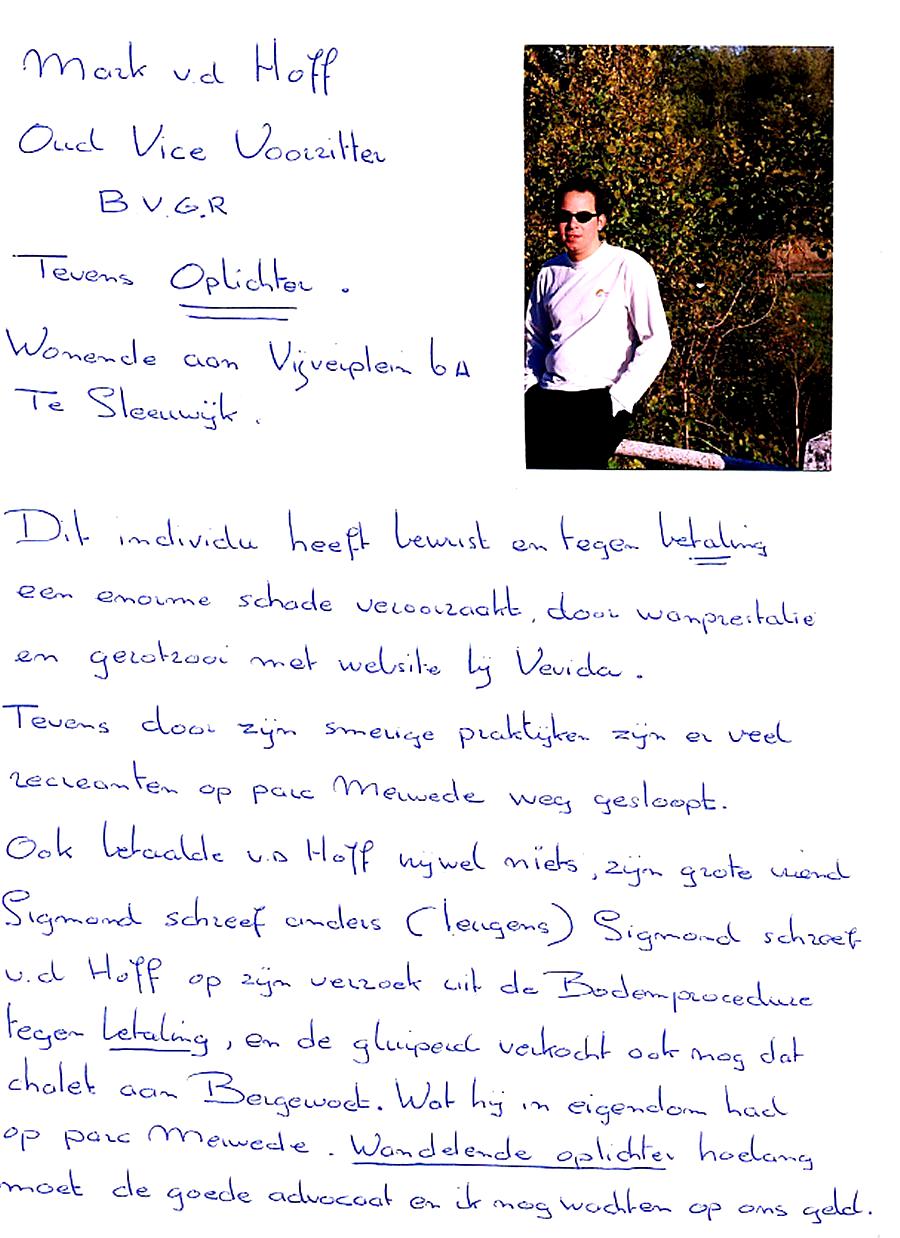 Mark v.d Hoff
Oud Vice Voorzitter
B V.G.R
Tevens Oplichter.
Wonende aan Vijverplein 6A
Te Sleeuwijk.
Dit individu heeft bewust en tegen betaling
een enorme schade veroorzaakt, door wanprestatie
en gerotzooi met website bij Vevida.
Tevens door zijn smerige praktijken zijn er veel
recreanten op parc Merwede weg gesloopt.
Ook betaalde v.d Hoff nijwel niets, zijn grote vriend
Sigmond schreef anders (leugens) Sigmond schreef
v.d Hoff op zijn verzoek uit de Bodemprocedure
tegen betaling, en de gluiperd verkocht ook nog dat
chalet aan Bergewoet. Wat hij in eigendom had
op parc Merwede. Wandelende oplichter hoelang
moet de goede advocaat en ik nog wachten op ons geld.